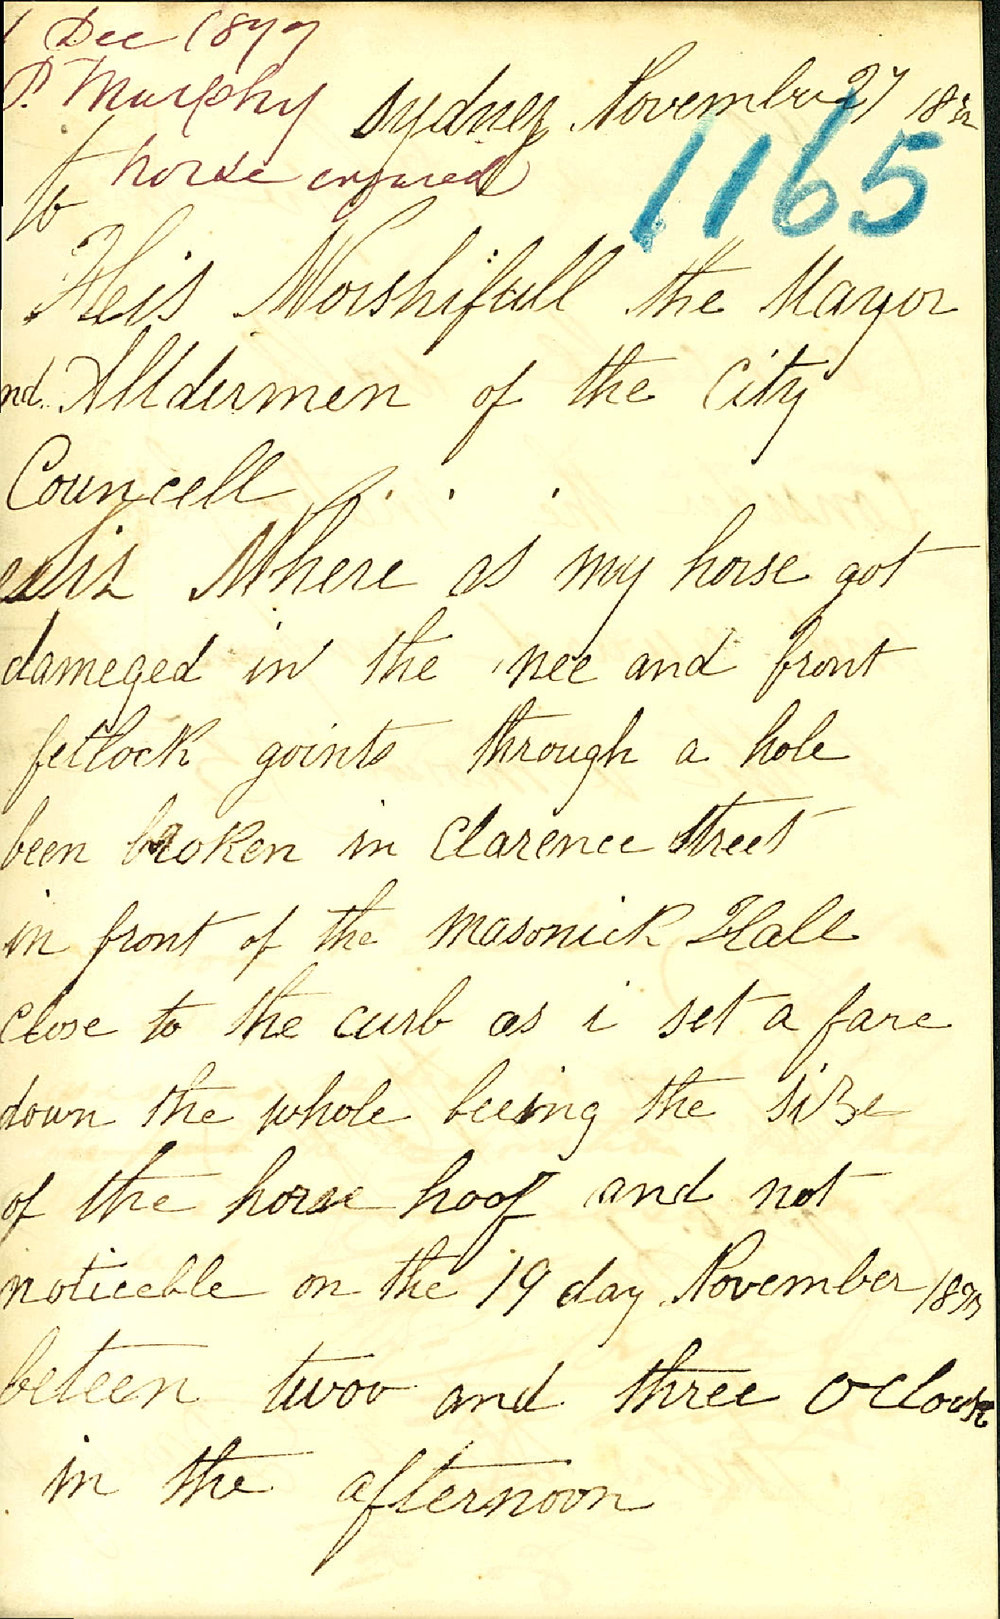 1 Dec 1877
P. Murphy
Sydney November 27
horse injured
1165
to
His Worshifull the Mayor
nd Alldermen of the City
Councell
Sir Where as my horse got
dameged in the nee and front
fetlock goints through a hole
been broken in Clarence Street
in front of the Masonick Hall
close to the curb as i set a fare
down the whole beeing the size
of the horse hoof and not
noticeble on the 19 day November 1877
beteen twov and three oclock
in the afternoon